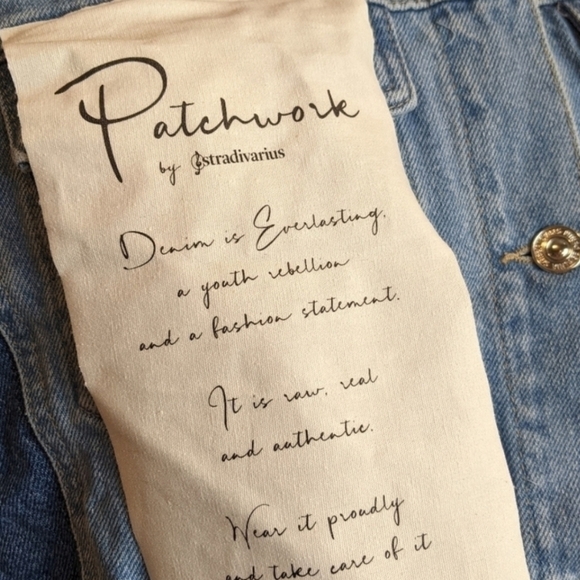 Patchwork
by stradivarius
Denim is Everlasting,
a youth rebellion
and a fashion statement.
It is raw, real
and authentic.
Wear it proudly
and take care of it